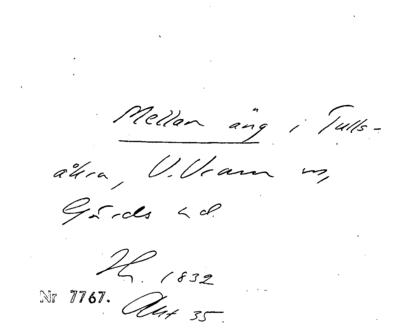 Mellan äng i Tulls-
åkra, V. Vram sn,
Gärds hd.
Hr. 1832
Nr 7767. Akt 35.